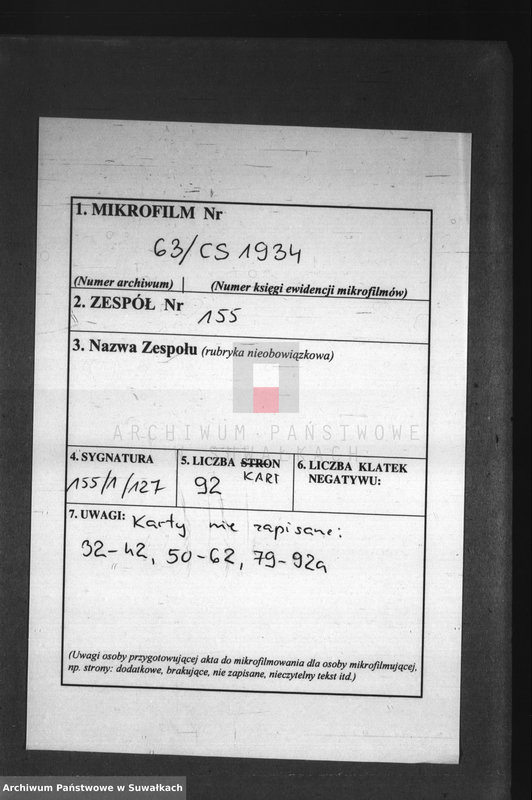 1. MIKROFILM Nr
63/CS 1934
(Numer archiwum) (Numer księgi ewidencji mikrofilmów)
2. ZESPÓŁ Nr
155
3. Nazwa Zespołu (rubryka nieobowiązkowa)
ARCHIWUM PAŃSTWOWE
SUWAŁKACH
4. SYGNATURA
155/1/127
5. LICZBA STRON
KART
92
6. LICZBA KLATEK
NEGATYWU:
7. UWAGI: Karty nie zapisane:
32-42, 50-62, 79-92a
(Uwagi osoby przygotowującej akta do mikrofilmowania dla osoby mikrofilmującej,
np. strony: dodatkowe, brakujące, nie zapisane, nieczytelny tekst itd.)
Archiwum Państwowe w Suwałkach